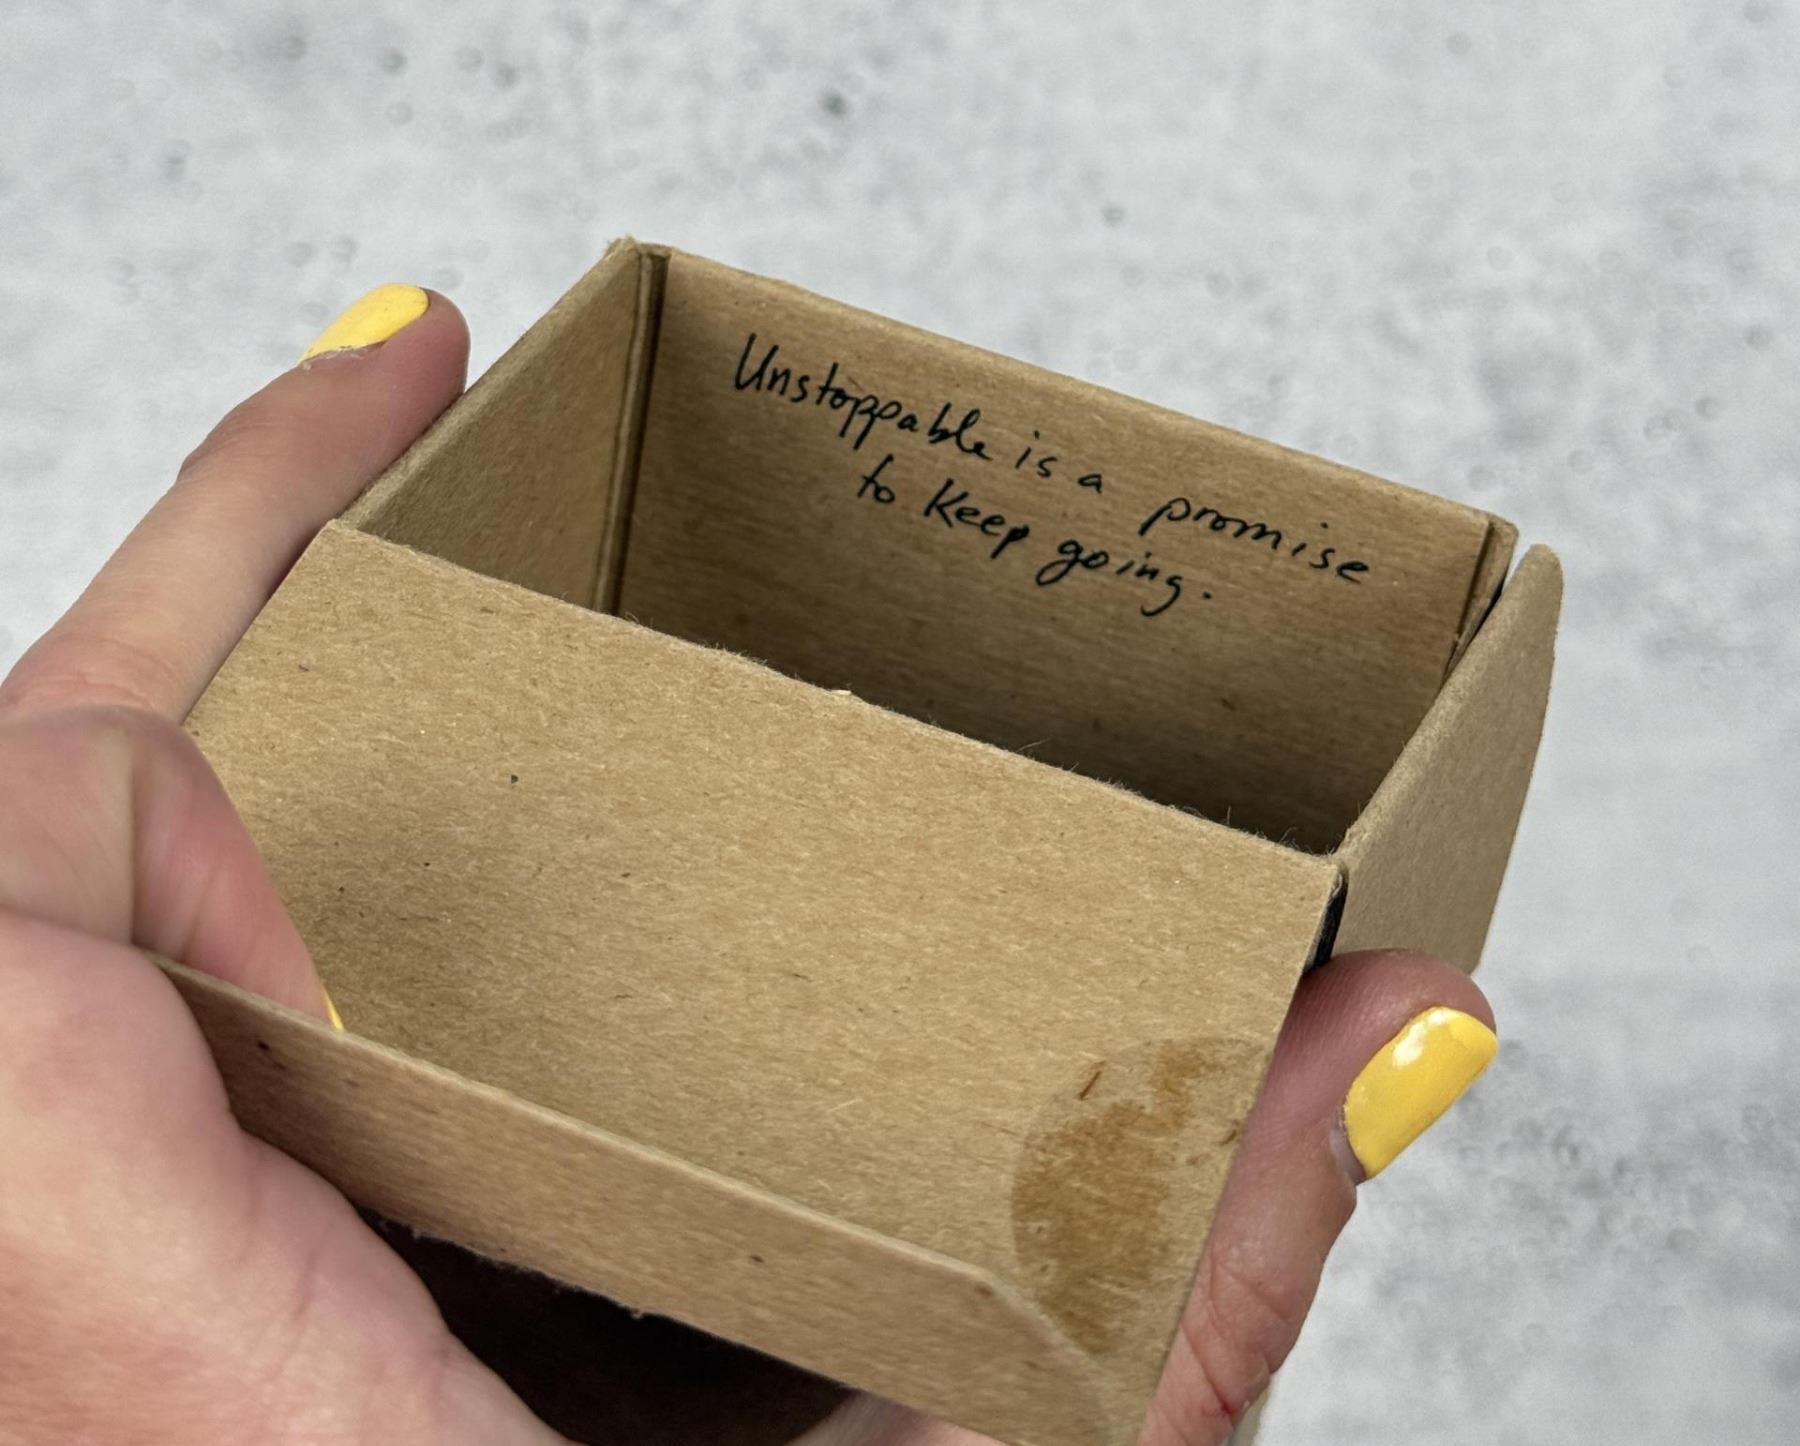 Unstoppable is a promise
to keep going.